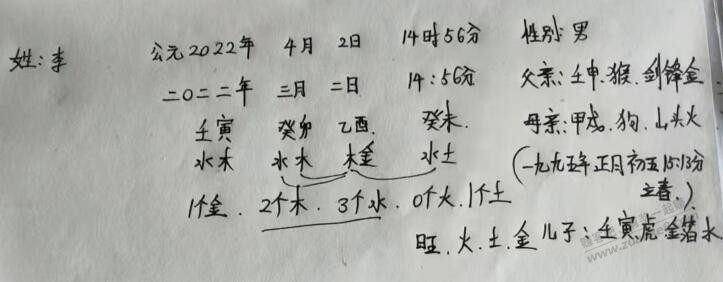 姓:李
公元2022年 4月 2日 14时56分 性别:男
二〇二二年 三月 二日 14:56分 父亲:壬申.猴.剑锋金
壬寅 癸卯 乙酉. 癸未. 母亲:甲戌.狗.山头火
水木 水木 木金 水土 (一九九五年正月初五15:13分
立春.)
1个金.2个木.3个水.0个火.1个土
旺.火.土.金 儿子:壬寅虎 金箔水